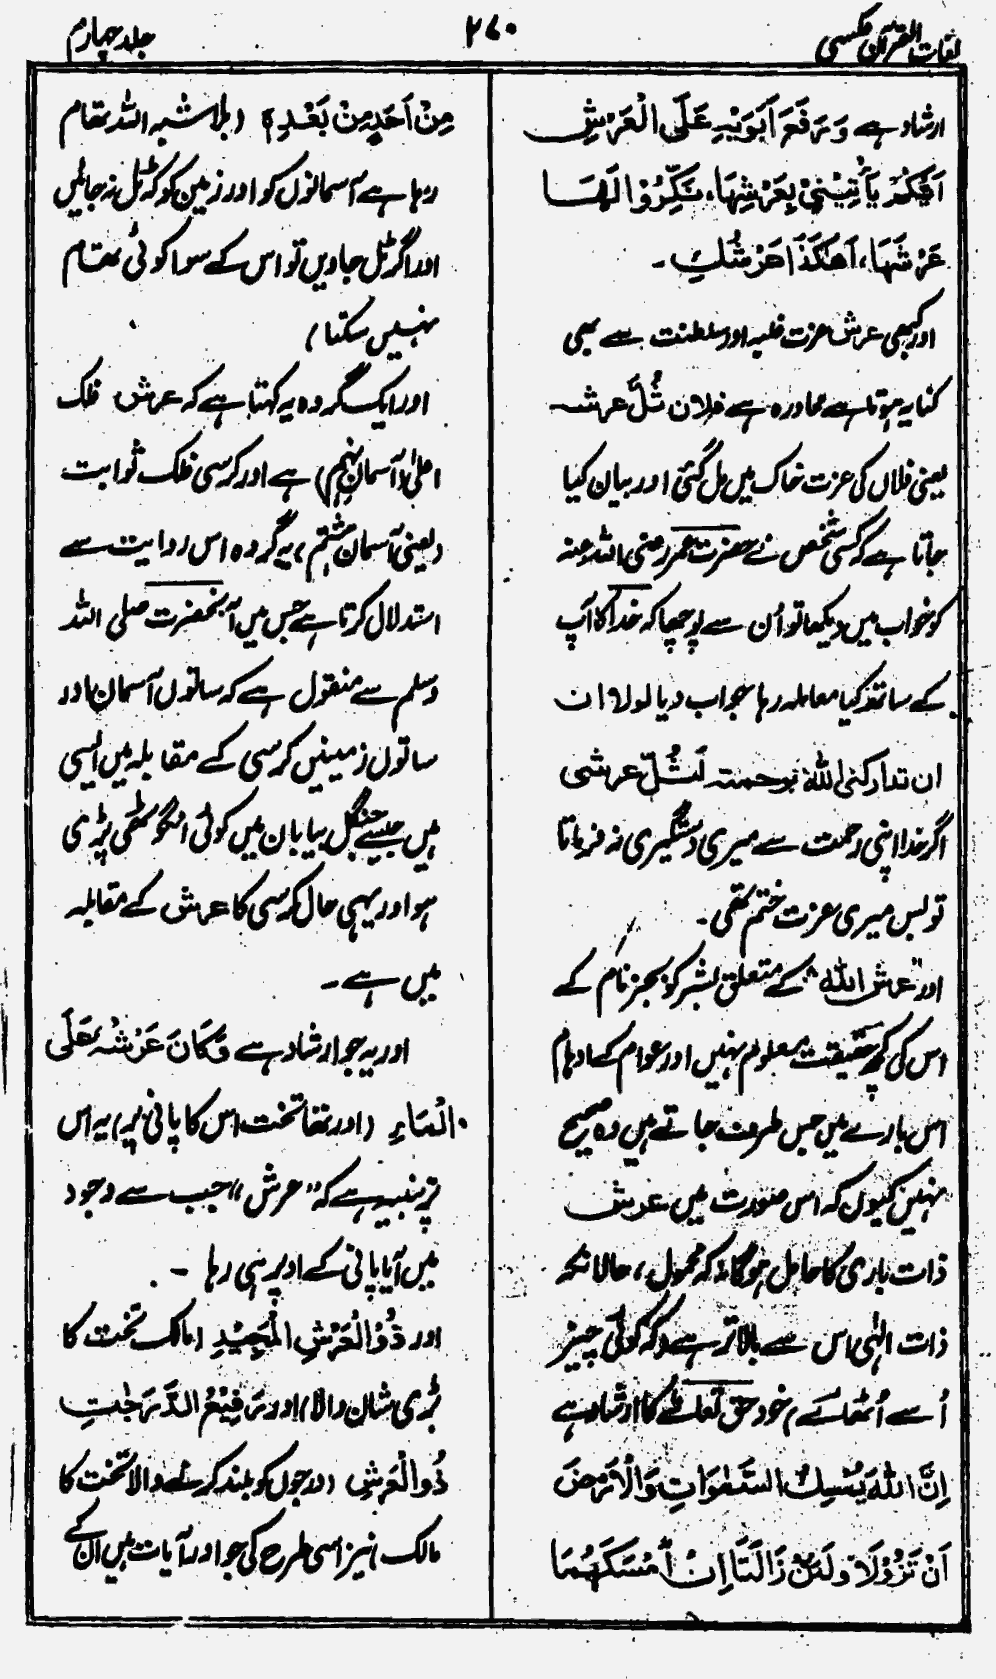 لغات القرآن عکسی
۲۷۰
جلد چہارم
ارشاد ہے وَرَفَعَ اَبَوَیْہِ عَلَی الْعَرْشِ
اَیُّکُمْ یَاْتِیْنِیْ بِعَرْشِہَا، نَکِّرُوْا لَہَا
عَرْشَہَا، اَھٰکَذَا عَرْشُكِ ۔
اور کبھی عرش عزت غلبہ اور سلطنت سے بھی
کنایہ ہوتا ہے محاورہ ہے فلان ثُلَّ عرشہ
یعنی فلاں کی عزت خاک میں مل گئی اور بیان کیا
جاتا ہے کہ کسی شخص نے حضرت عمر رضی اللہ عنہ
کو خواب میں دیکھا تو اُن سے پوچھا کہ خدا کا آپ
کے ساتھ کیا معاملہ رہا جواب دیا لولا ان
ان تدارکنی اللہ برحمتہ لَثُلَّ عرشی
اگر خدا اپنی رحمت سے میری دستگیری نہ فرماتا
تو بس میری عزت ختم تھی ۔
اور "عرش اللہ" کے متعلق بشر کو بجز نام کے
اس کی کچھ حقیقت معلوم نہیں اور عوام کے اوہام
اس بارے میں جس طرف جاتے ہیں وہ صحیح
نہیں کیوں کہ اس صورت میں عرش
ذات باری کا حامل ہوگا نہ کہ محمول، حالانکہ
ذات الٰہی اس سے بالاتر ہے کہ کوئی چیز
اُسے اُٹھا سکے، خود حق تعالےٰ کا ارشاد ہے
اِنَّ اللہَ یُمْسِكُ السَّمٰوَاتِ وَالْاَرْضَ
اَنْ تَزُوْلَا، وَلَئِنْ زَالَتَا اِنْ اَمْسَکَہُمَا
مِنْ اَحَدٍ مِنْ بَعْدِہٖ (بلاشبہ اللہ تھام
رہا ہے آسمانوں کو اور زمین کو کہ ٹل نہ جائیں
اور اگر ٹل جاویں تو اس کے سوا کوئی تھام
نہیں سکتا)
اور ایک گروہ یہ کہتا ہے کہ عرش فلک
اعلیٰ (آسمانِ نہم) ہے اور کرسی فلک ثوابت
(یعنی آسمان ہشتم)، یہ گروہ اس روایت سے
استدلال کرتا ہے جس میں آنحضرت صلی اللہ
وسلم سے منقول ہے کہ ساتوں آسمان اور
ساتوں زمینیں کرسی کے مقابلہ میں ایسی
ہیں جیسے جنگل بیابان میں کوئی انگوٹھی پڑی
ہو اور یہی حال کرسی کا عرش کے مقابلہ
میں ہے ۔
اور یہ جو ارشاد ہے وَکَانَ عَرْشُہٗ عَلَی
الْمَاءِ (اور تھا تخت اس کا پانی پر) یہ اس
پر تنبیہ ہے کہ "عرش" جب سے وجود
میں آیا پانی کے اوپر ہی رہا ۔
اور ذُوالْعَرْشِ الْمَجِیْدِ (مالک تخت کا
بڑی شان والا) اور رَفِیْعُ الدَّرَجٰتِ
ذُوالْعَرْشِ (درجوں کو بلند کرنے والا تخت کا
مالک) نیز اسی طرح کی جو اور آیات ہیں ان کے